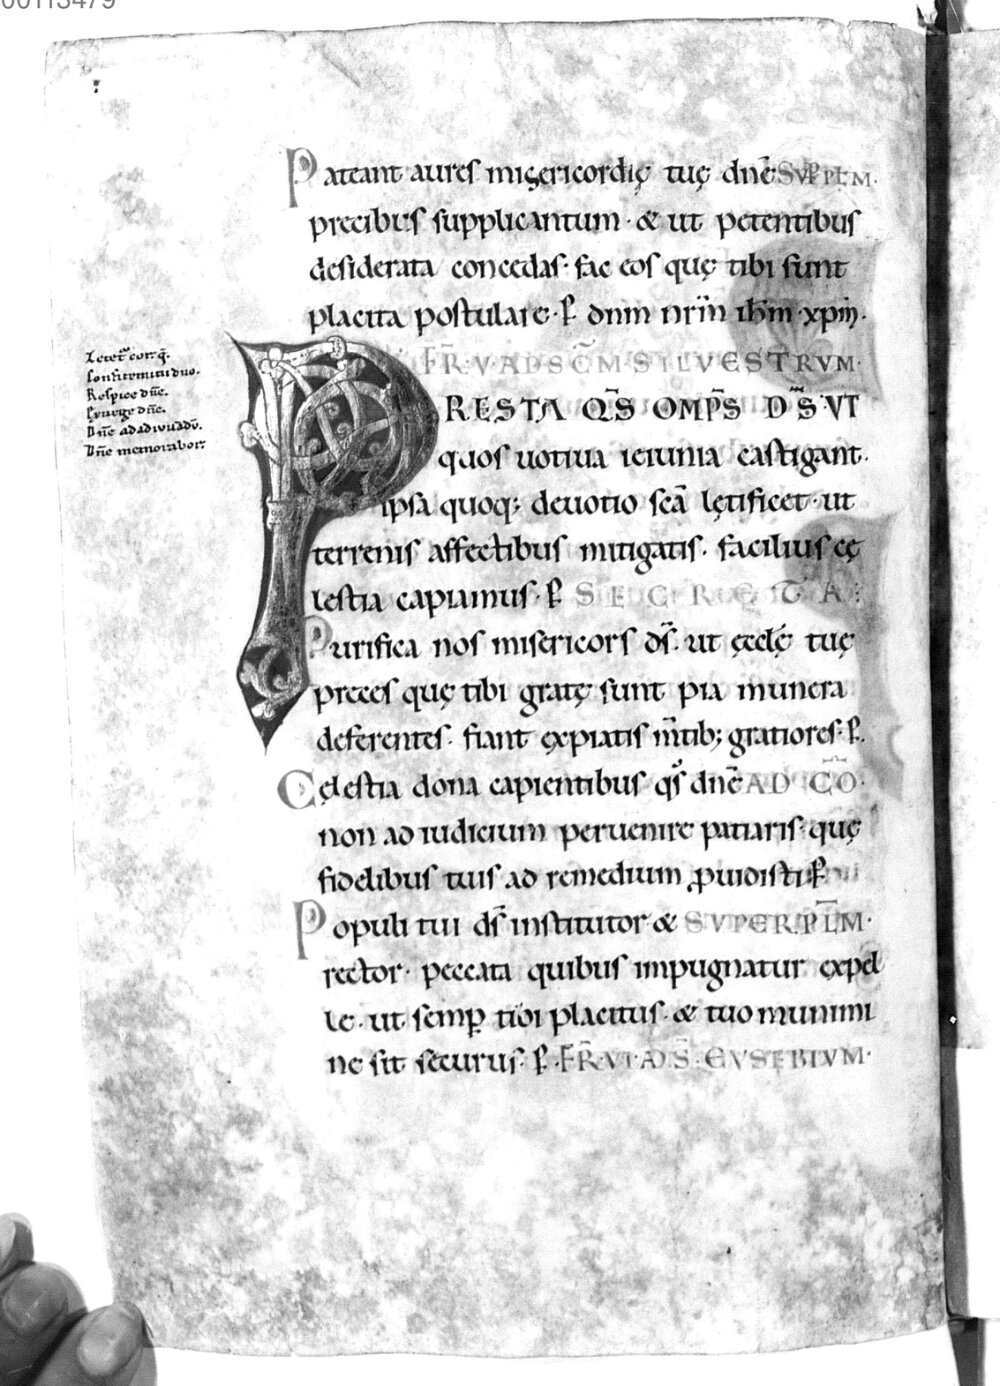 00113479
Pateant aures misericordię tuę dnē SVP PLM.
precibus supplicantium· & ut petentibus
desiderata concedas· fac eos quę tibi sunt
placita postulare· P̄ dnm nrm̄ ihm̄ xpm̄.
FR̄ V· AD SC̄M SILVESTRVM·
PRESTA QS̄ OMPS̄ DS̄ VT
quos uotiua ieiunia castigant·
ipsa quoq; deuotio scā lętificet· ut
terrenis affectibus mitigatis· facilius cę
lestia capiamus· P̄ SECRETA:
Purifica nos misericors ds̄· ut ęcclę tuę
preces quę tibi gratę sunt pia munera
deferentes· fiant expiatis m̄tib; gratiores· P̄.
Cęlestia dona capientibus qs̄ dnē AD CŌ·
non ad iudicium peruenire patiaris· quę
fidelibus tuis ad remedium ꝓuidisti· P̄
Populi tui ds̄ institutor & SVPER PL̄M·
rector· peccata quibus impugnatur expel
le· ut semꝑ tibi placitus· & tuo munimi
ne sit securus· P̄ FR̄ VI AD S̄ EVSEBIVM·
Confitemini duo.
Respice dn̄e.
Exurge dn̄e.
Dn̄e ad adiuuadū.
Dn̄e memorabor: